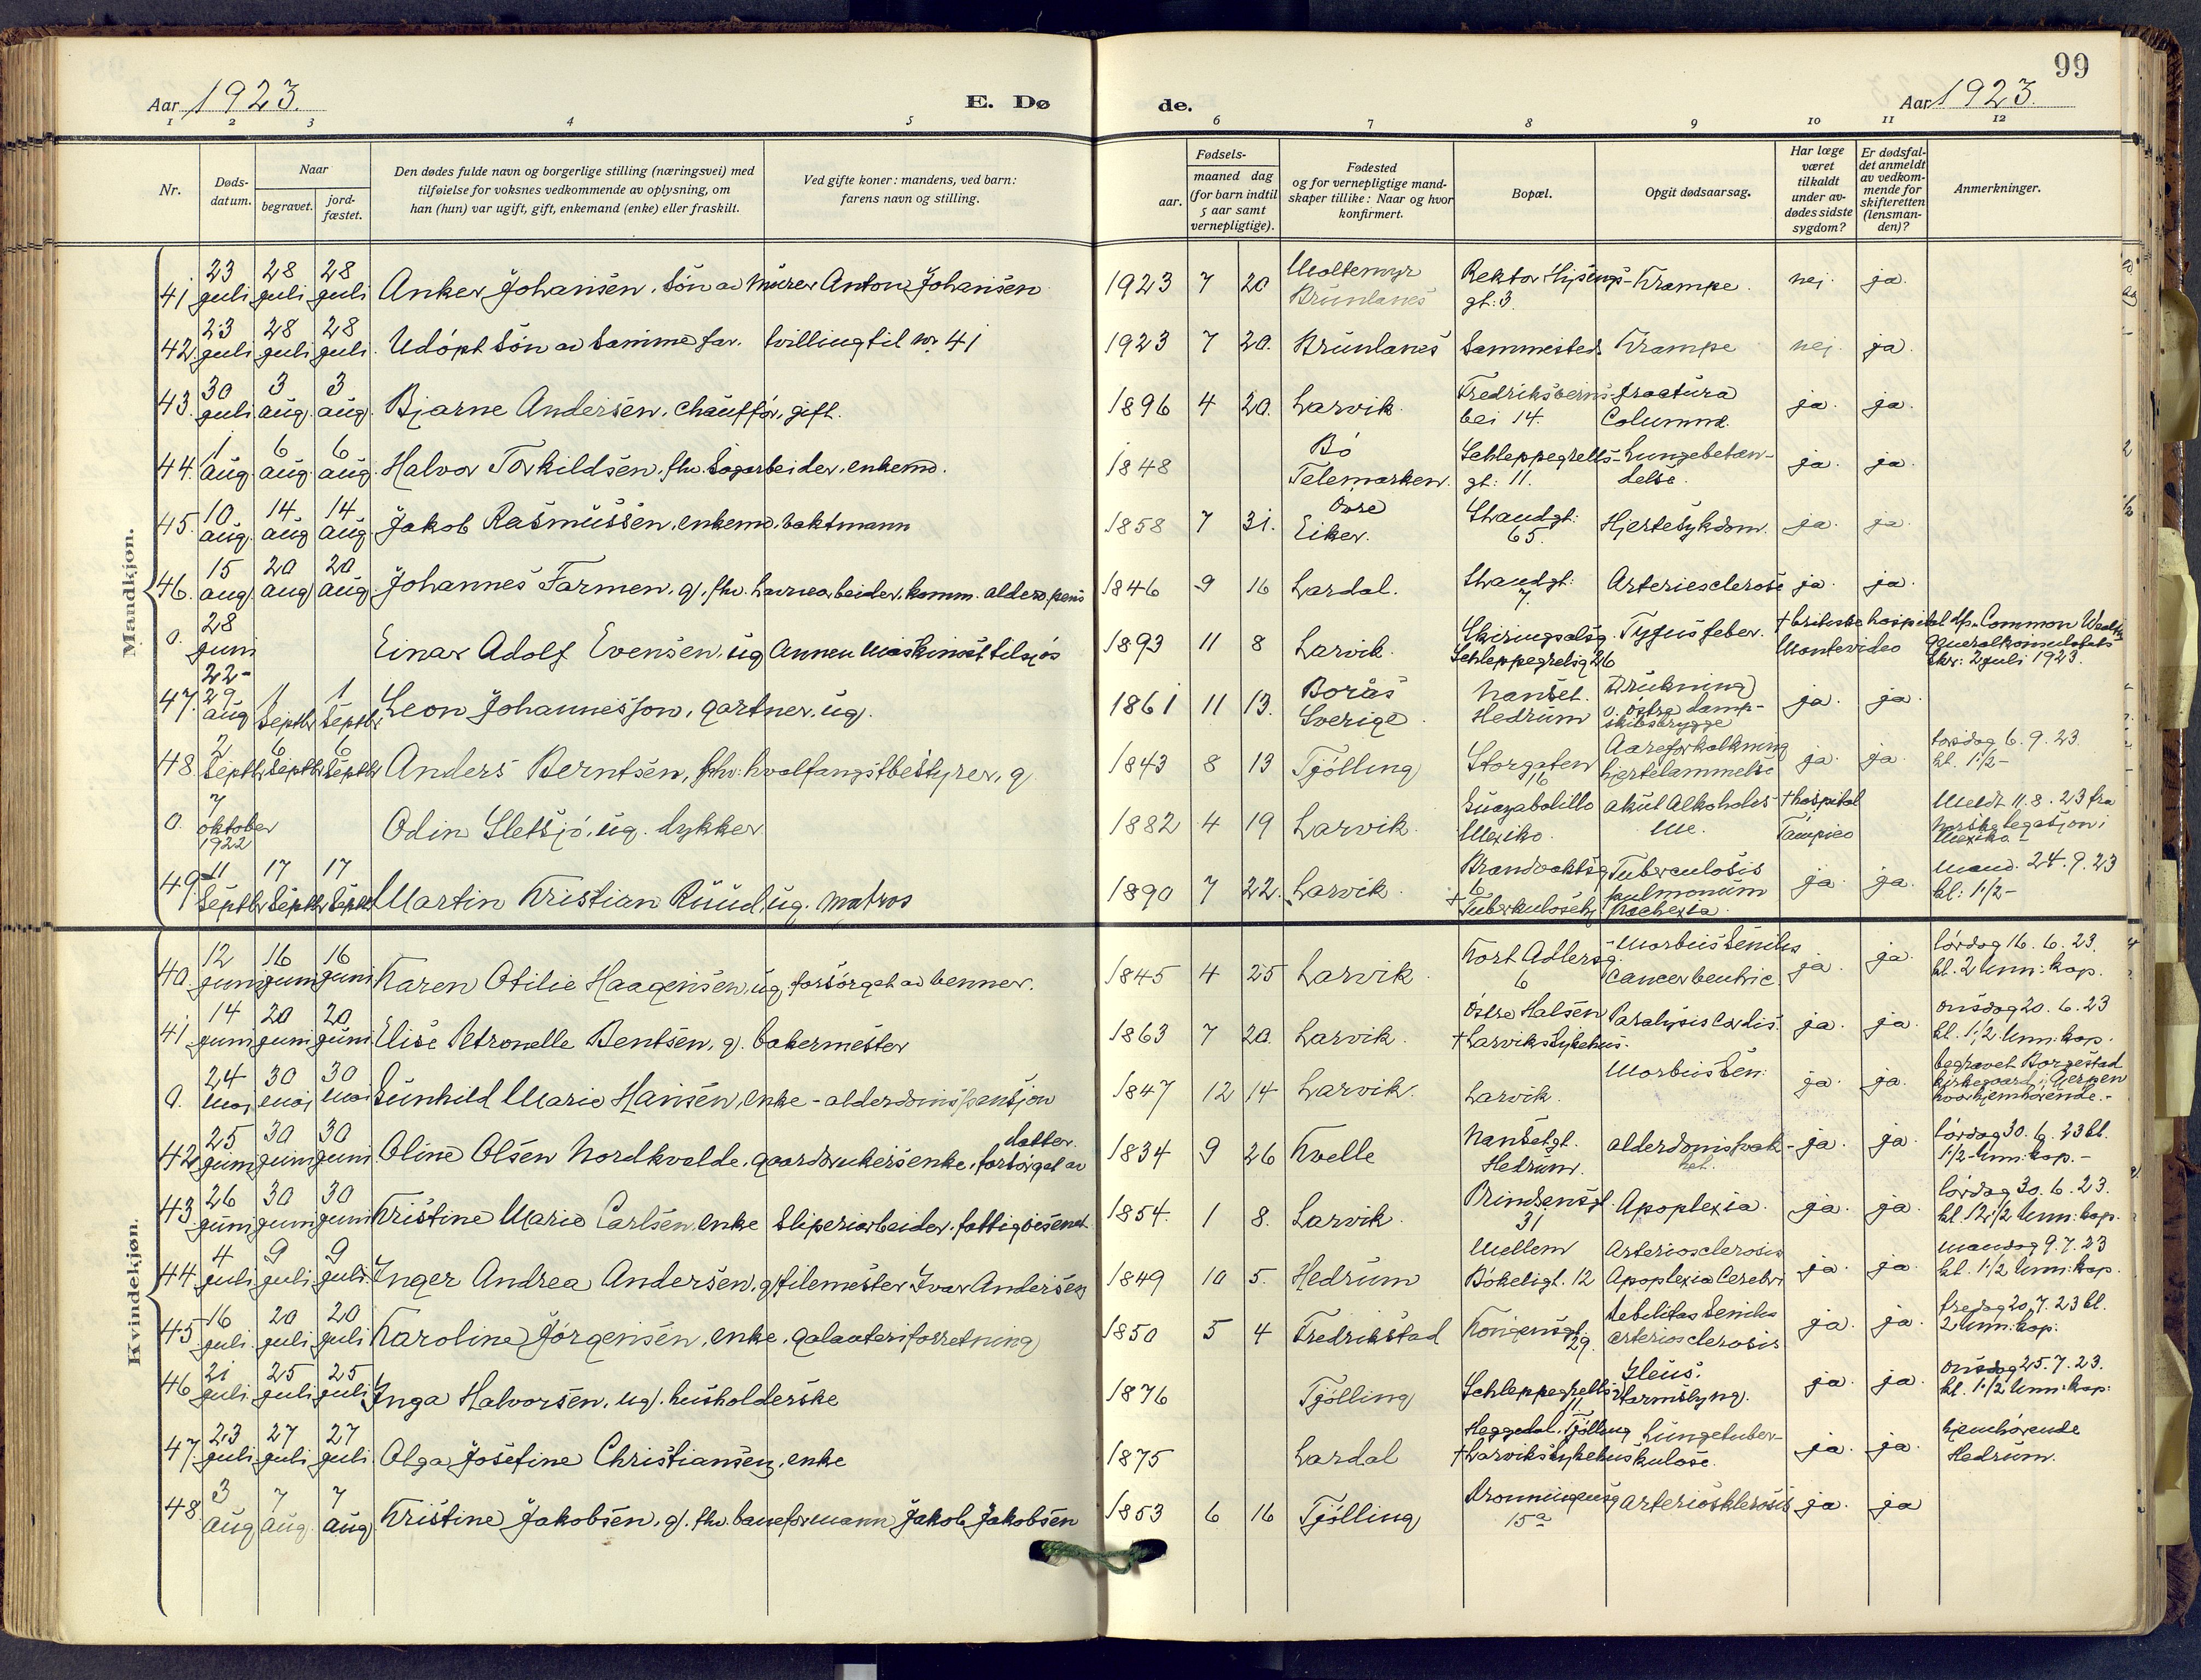 99
Aar 1923.
E. Dø
de.
Aar 1923.
1 2 3 4 5 6 7 8 9 10 11 12
Nr.
Døds-
datum.
Naar
begravet.
jord-
fæstet.
Den dødes fulde navn og borgerlige stilling (næringsvei) med
tilføielse for voksnes vedkommende av oplysning, om
han (hun) var ugift, gift, enkemand (enke) eller fraskilt.
Ved gifte koner: mandens, ved barn:
farens navn og stilling.
Fødsels-
aar.
maaned dag
(for barn indtil
5 aar samt
vernepligtige).
Fødested
og for vernepligtige mand-
skaper tillike: Naar og hvor
konfirmert.
Bopæl.
Opgit dødsaarsag.
Har læge
været
tilkaldt
under av-
dødes sidste
sygdom?
Er dødsfal-
det anmeldt
av vedkom-
mende for
skifteretten
(lensman-
den)?
Anmerkninger.
Mandkjøn.
41. 23 juli 28 juli 28 juli Anker Johansen. Søn av murer Anton Johansen 1923 7 20 Moltemyr Brunlanes Rektor Hysings- gt: 3. Krampe. nej. ja.
42. 23 juli 28 juli 28 juli. Udøpt Søn av Samme far. tvilling til nr. 41 1923 7 20. Brunlanes Sammesteds Krampe nej. ja.
43. 30 juli 3 aug. 3 aug. Bjarne Andersen, chauffør, gift. 1896 4 20. Larvik. Fredriksverns- vei 14. fractura Columna. ja. ja.
44. 1 aug. 6 aug. 6 aug. Halvor Torkildsen, fhv. Sagarbeider, enkem. 1848 Bø Telemarken. Schleppegrells- gt: 11. Lungebetæn- delse. ja. ja.
45. 10 aug. 14 aug 14 aug Jakob Rasmussen, enkem. vaktmann 1858 7 31. Øvre Eiker. Strandgt: 65. Hjertesykdom. ja. ja.
46. 15 aug. 20 aug 20 aug. Johannes Farmen, g. fhv. havnearbeider, komm. alderd. pens 1846 9 16 Lardal. Strandgt: 7. Arteriesclerose ja. ja.
0. 28 juni Einar Adolf Evensen, ug Annen maskinist tilsjøs 1893 11 8 Larvik. Skiringsalsg. Schleppegrellsg 26 Tyfusfeber. † britiske hospital Montevideo Common Wealth Generalkonsulatets Skr: 2 juli 1923.
47. 22- 29 aug 1 Septbr 1 Septbr Leon Johannesson, gartner, ug. 1861 11 13. Borås Sverige. Nanset. Hedrum Drukning v. østre damp- skibsbrygge ja. ja.
48. 2 Septbr 6 Septbr 6 Septbr Anders Berntsen, fhv: hvalfangstbestyrer, g 1843 8 13 Tjølling Storgaten 16 Aareforkalkning hjertelammelse ja. ja. torsdag 6. 9. 23. kl. 1 1/2 -
0. 7 oktober 1922 Odin Sletsjø, ug. dykker 1882 4 19 Larvik. Mexiko. akut Alkoholis- me. † hospital Tampico Meldt 11. 8. 23 fra norske legasjon i Mexiko. -
49. 11 Septbr 17 Septbr 17 Septbr Martin Kristian Ruud, ug. matros 1890 7 22. Larvik. Brandvaktsg 6 † Tuberkulosehj Tuberculosis pulmonum Kachexia. ja. ja. mand. 24. 9. 23 kl: 1 1/2 -
Kvindekjøn.
40. 12 juni 16 juni 16 juni Karen Otilie Haagensen, ug. forsørget av venner. 1845 4 25 Larvik. Kort Adlersg. 6 Morbus Senilis Cancer ventric. ja. ja. lørdag 16. 6. 23. kl. 2 Unn: kap.
41. 14 juni 20 juni 20 juni Elise Petronelle Bentsen, g. bakermester 1863 7 20. Larvik. Østre Halsen † Larviks Sykehus. Paralysis Cordis. ja. ja. onsdag 20. 6. 23 kl. 1 1/2 Unn: kap.
0. 24 mai 30 mai 30 mai Gunhild Marie Hansen, enke - alderdomspensjon 1847 12 14 Larvik. Larvik. Morbus Sen: ja. ja. begravet Borgestad kirkegaard, Gjerpen hvor hjemhørende. -
42. 25 juni 30 juni 30 juni. Oline Olsen Nordkvelde, gaardbrukersenke, forsørget av datter. 1834 9 26 Kvelle Nansetgt. Hedrum. alderdomssvak- het. ja. ja. lørdag 30. 6. 23 kl. 1 1/2 - Unn: kap. -
43. 26 juni 30 juni 30 juni Kristine Marie Carlsen, enke Sliperiarbeider, fattigvesenet. 1854. 1 8. Larvik. Prindsensgt. 31 Apoplexia. ja. ja. lørdag 30. 6. 23. kl. 12 1/2 Unn: kap.
44. 4 juli 9 juli 9 juli. Inger Andrea Andersen, g/ filemester Ivar Andersen 1849 10 5. Hedrum Mellem Bøkeligt. 12 Arteriosclerosis Apoplexia Cerebri ja. ja. mandag 9. 7. 23 kl. 1 1/2 Unn: kap.
45. 16 juli. 20 juli 20 juli Karoline Jørgensen, enke, galanteriforretning 1850 5 4 Fredrikstad Kongensgt. 29. Debilitas Senilis arteriosclerosis ja. ja. fredag 20. 7. 23 kl. 2 Unn: kap.
46. 21 juli 25 juli 25 juli Inga Halvorsen, ug. husholderske 1876 Tjølling Schleppegrellsg 11 Ileus. Tarmslyng. ja. ja. onsdag 25. 7. 23. kl. 1 1/2 Unn: kap:
47. 23 juli 27 juli 27 juli. Olga Josefine Christiansen, enke 1875 Lardal Heggedal. Tjølling † Larviks Sykehus Lungetuber- kulose. ja. ja. hjemhørende Hedrum.
48. 3 aug 7 aug. 7 aug. Kristine Jakobsen, g. fhv. baneformann Jakob Jakobsen 1853 6 16 Tjølling Dronningensg 15a arteriosklerosis ja. ja